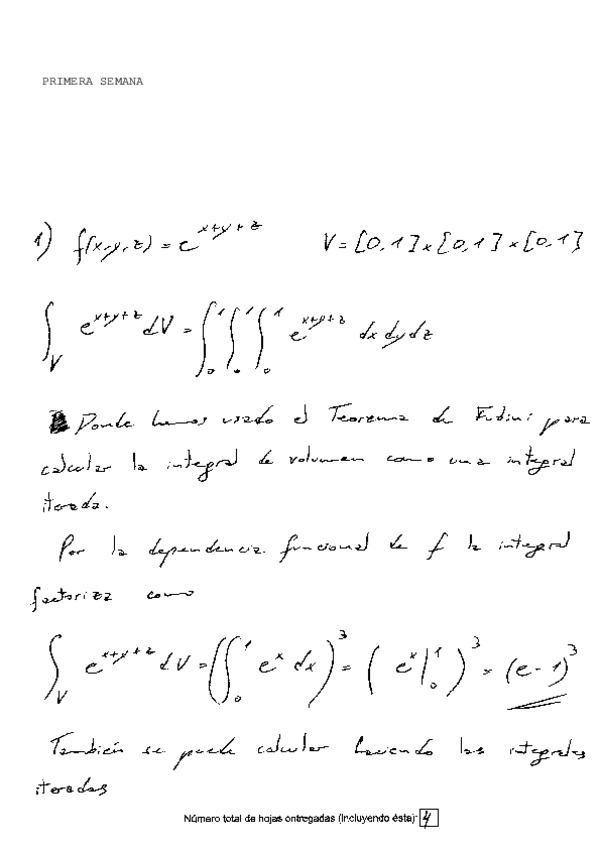 PRIMERA SEMANA
1) f(x,y,z) = e^{x+y+z} V = [0,1]×[0,1]×[0,1]
∫_V e^{x+y+z} dV = ∫_0^1 ∫_0^1 ∫_0^1 e^{x+y+z} dx dy dz
Donde hemos usado el Teorema de Fubini para
calcular la integral de volumen como una integral
iterada.
Por la dependencia funcional de f la integral
factoriza como
∫_V e^{x+y+z} dV = (∫_0^1 e^x dx)^3 = (e^x|_0^1)^3 = (e-1)^3
También se puede calcular haciendo las integrales
iteradas
Número total de hojas entregadas (Incluyendo ésta): 4